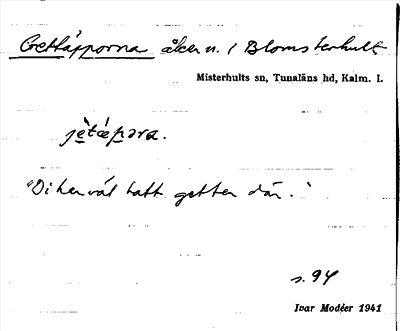 Gettäpporna åker n. i Blomsterhult
Misterhults sn, Tunaläns hd, Kalm. l.
jètæ̀pəra.
"Di her väl hatt getter där."
s. 94
Ivar Modéer 1941